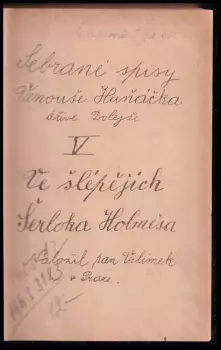 Sebrané spisy
Vénouše Huňáčka
dříve Dolejše
V
Ve šlépějích
Šerloka Holmésa
Naložil pan Vilímek
v Praze.
12.-